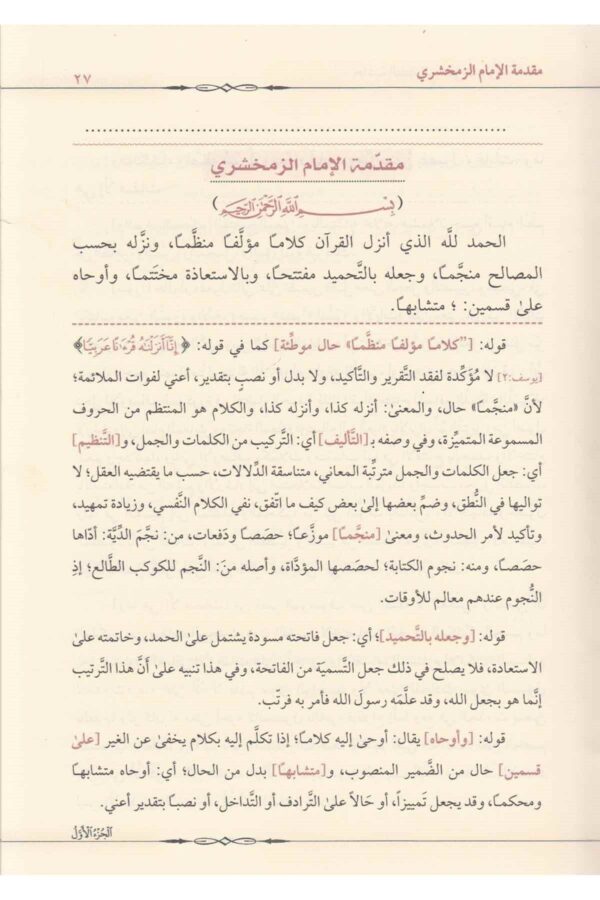 مقدمة الإمام الزمخشري
٢٧
مقدّمة الإمام الزمخشري
(بِسْمِ اللَّهِ الرَّحْمَٰنِ الرَّحِيمِ)
الحمد للَّه الذي أنزل القرآن كلامًا مؤلَّفًا منظَّمًا، ونزَّله بحسب
المصالح منجَّمًا، وجعله بالتَّحميد مفتتحًا، وبالاستعاذة مختتمًا، وأوحاه
علىٰ قسمين: ؛ متشابهًا.
قوله: [”كلامًا مؤلفًا منظَّمًا» حال موطِّئة] كما في قوله: ﴿إِنَّا أَنزَلْنَٰهُ قُرْءَٰنًا عَرَبِيًّا﴾
[يوسف:٢] لا مُؤَكِّدة لفقد التَّقرير والتَّأكيد، ولا بدل أو نصبٍ بتقدير، أعني لفوات الملائمة؛
لأنَّ «منجمًا» حال، والمعنىٰ: أنزله كذا، وأنزله كذا، والكلام هو المنتظم من الحروف
المسموعة المتميِّزة، وفي وصفه بـ [التَّأليف] أي: التَّركيب من الكلمات والجمل، و[التَّنظيم]
أي: جعل الكلمات والجمل مترتِّبة المعاني، متناسقة الدِّلالات، حسب ما يقتضيه العقل؛ لا
تواليها في النُّطق، وضمِّ بعضها إلىٰ بعض كيف ما اتَّفق، نفي الكلام النَّفسي، وزيادة تمهيد،
وتأكيد لأمر الحدوث، ومعنىٰ [منجَّمًا] موزَّعًا؛ حصَصًا ودَفعات، من: نجَّمَ الدِّيَّة: أدّاها
حصَصًا، ومنه: نجوم الكتابة؛ لحصَصها المؤدَّاة، وأصله منَ: النَّجم للكوكب الطَّالع؛ إذِ
النُّجوم عندهم معالم للأوقات.
قوله: [وجعله بالتَّحميد]؛ أي: جعل فاتحته مسودة يشتمل علىٰ الحمد، وخاتمته علىٰ
الاستعادة، فلا يصلح في ذلك جعل التَّسميّة من الفاتحة، وفي هذا تنبيه علىٰ أنَّ هذا التَّرتيب
إنَّما هو بجعل الله، وقد علَّمَه رسولَ الله فأمر به فرتّب.
قوله: [وأوحاه] يقال: أوحىٰ إليه كلامًا؛ إذا تكلَّم إليه بكلام يخفىٰ عن الغير [علىٰ
قسمين] حال من الضَّمير المنصوب، و[متشابهًا] بدل من الحال؛ أي: أوحاه متشابهًا
ومحكمًا، وقد يجعل تَمييزًا، أو حَالاً علىٰ التَّرادف أو التَّداخل، أو نصبًا بتقدير أعني.
الجزء الأول